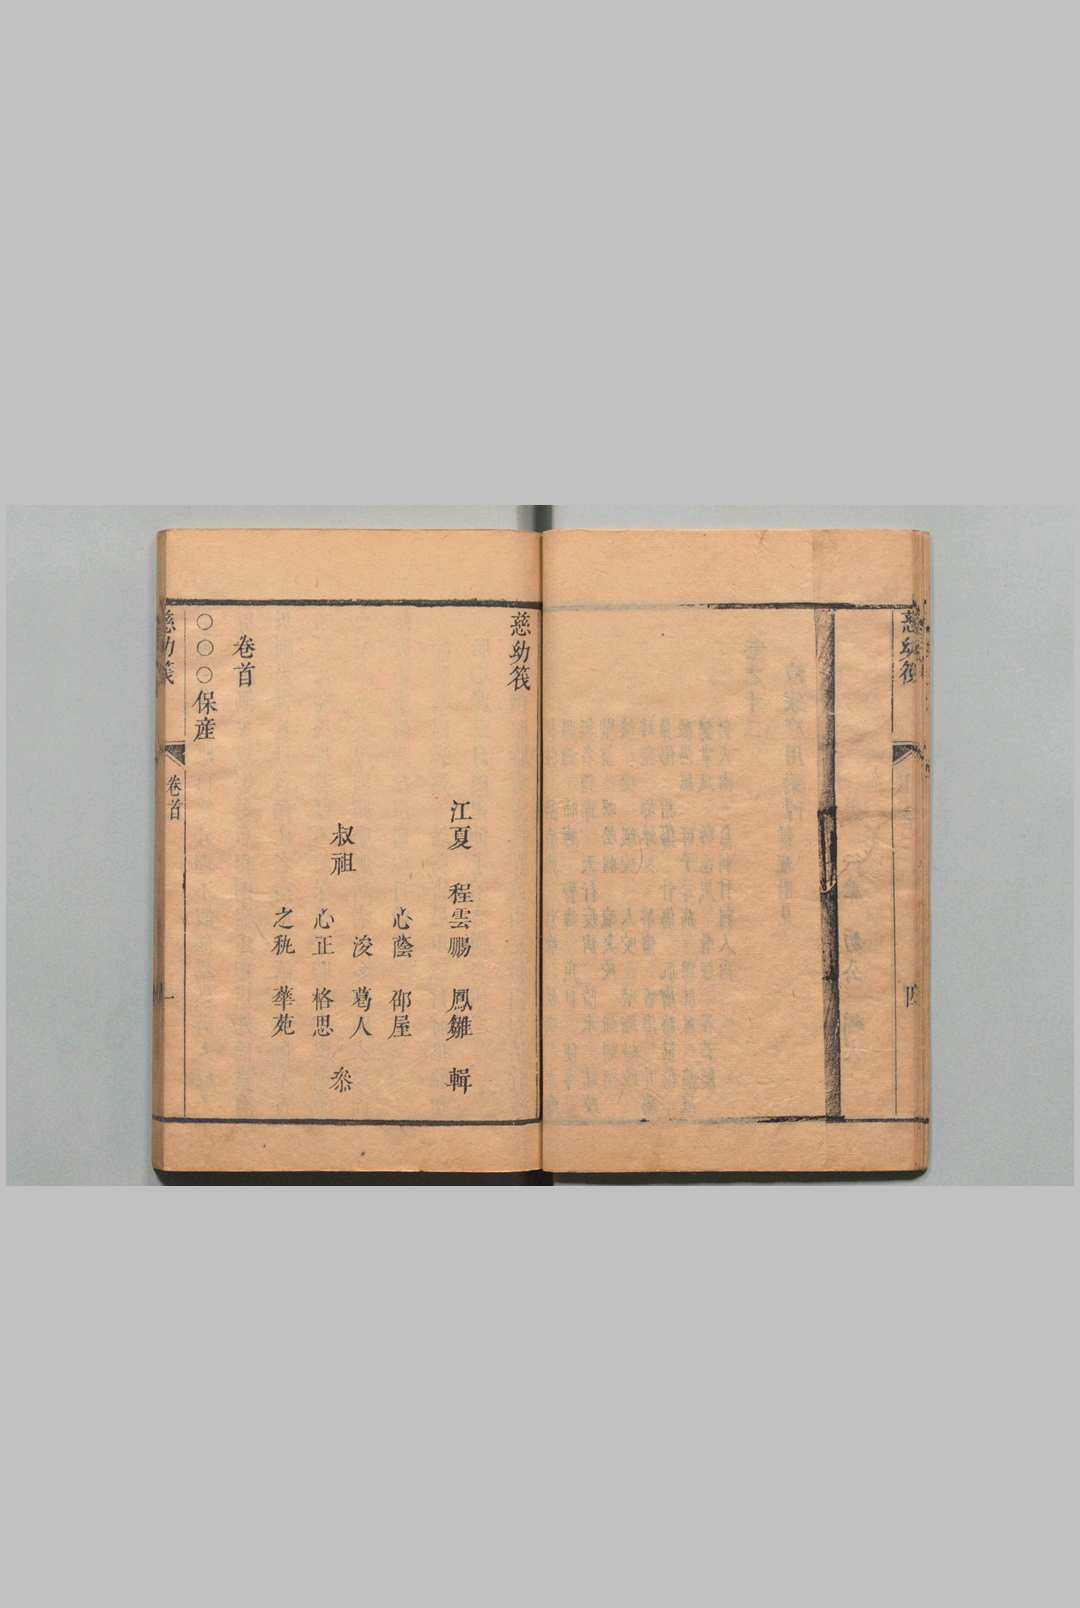 慈幼筏
四
慈幼筏
江夏 程雲鵬 鳳雛 輯
心蔭 邵屋
浚 葛人
叔祖 參
心正 格思
之秔 華苑
卷首
〇〇〇保産
慈幼筏 卷首 一